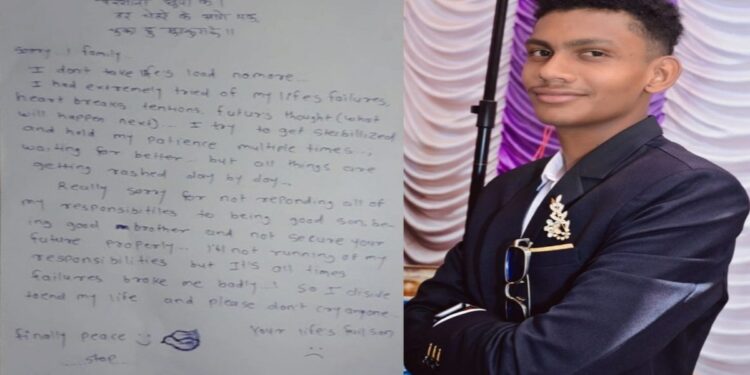 के
Sorry..! family...
I don't take life's load nomore...
I had extremely tried of my life's failures,
heart breaks, tentions, future thought (what
will happen next)... I try to get sterbillized
and hold my patience multiple times..,
waiting for better... but all things are
getting rashed day by day..
Really sorry for not reponding all of
my responsibitiles to being good son, be-
ing good brother and not secure your
future properly... I'll not running of my
responsibilities but It's all times
failures broke me badly...! so I diside
to end my life and please don't cry anyone...
finally peace Your life's fail son
....stop...